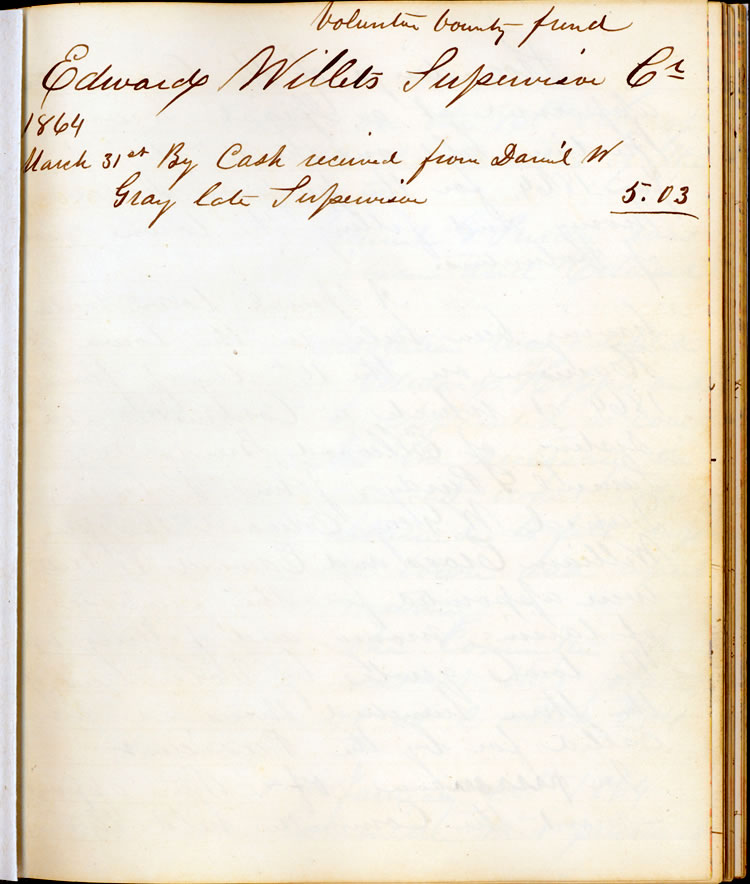 Volunteer bounty fund
Edward Willets Supervisor Cr
1864
March 31st By Cash received from Daniel W
Gray late Supervisor 5.03